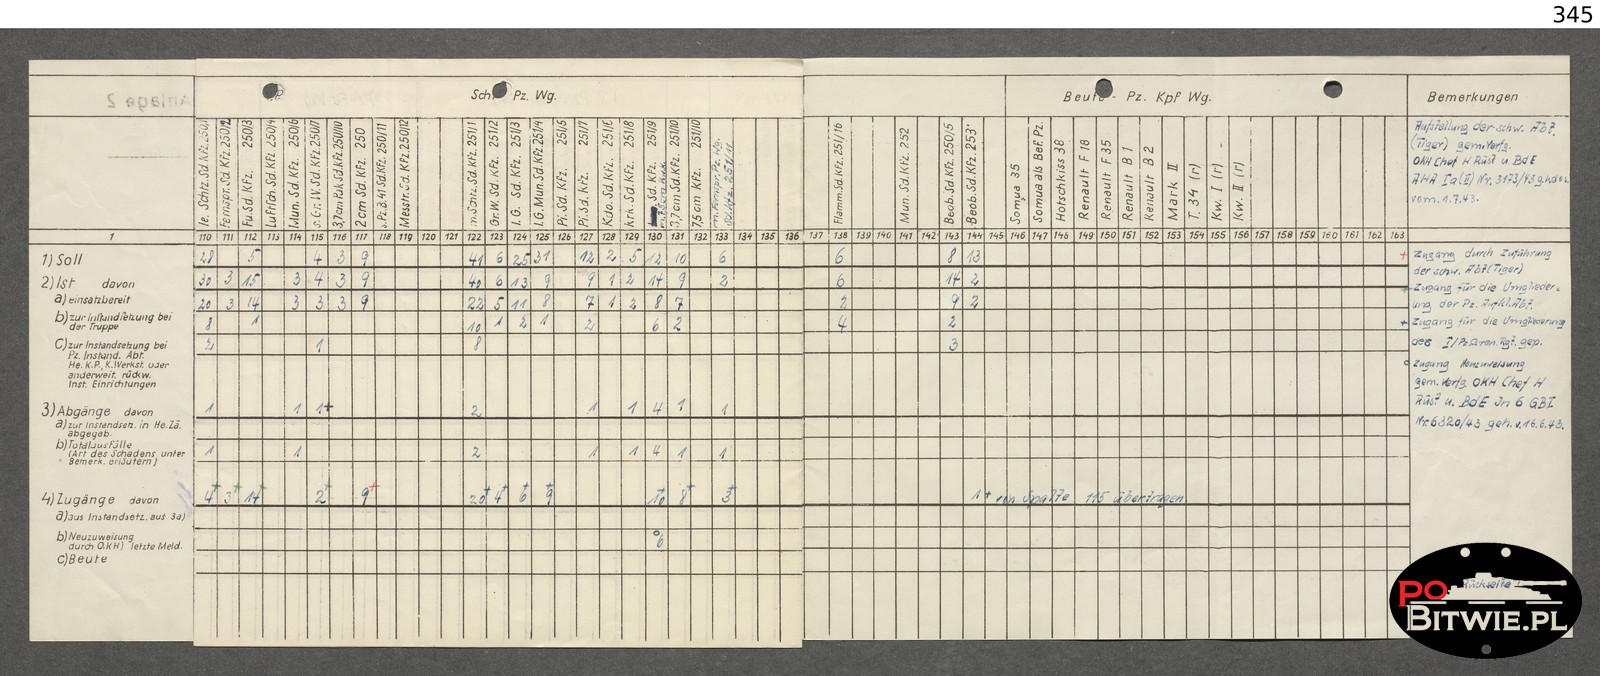 345
Anlage 2
Pz. Wg.
Beute - Pz. Kpf Wg.
Bemerkungen
le. Schtz. Sd. Kfz. 250/1
Fernspr. Sd. Kfz. 250/2
Fu. Sd. Kfz. 250/3
Luftsch. Sd. Kfz. 250/4
Mun. Sd. Kfz. 250/6
s. Gr. W. Sd. Kfz. 250/7
3,7cm Pak Sd. Kfz. 250/10
2 cm Sd. Kfz. 250
s. Pz. B. 41 Sd. Kfz. 250/11
Messtr. Sd. Kfz. 250/12
m. Schtz. Sd. Kfz. 251/1
Gr. W. Sd. Kfz. 251/2
I. G. Sd. Kfz. 251/3
I. G. Mun. Sd. Kfz. 251/4
Pi. Sd. Kfz. 251/5
Pi. Sd. Kfz. 251/7
Kdo. Sd. Kfz. 251/6
Krk. Sd. Kfz. 251/8
Sd. Kfz. 251/9
3,7 cm Sd. Kfz. 251/10
7,5 cm Kfz. 251/10
m. Fernspr. Pz. Wg.
Sd. Kfz. 251/11
Flamm. Sd. Kfz. 251/16
Mun. Sd. Kfz. 252
Beob. Sd. Kfz. 250/5
Beob. Sd. Kfz. 253
Somua 35
Somua als Bef. Pz.
Hotschkiss 38
Renault F 18
Renault F 35
Renault B 1
Renault B 2
Mark II
T. 34 (r)
Kw. I (r)
Kw. II (r)
Aufstellung der schw. Abt.
(Tiger) gem. Verfg.
OKH Chef H Rüst u. BdE
AHA Ia(II) Nr. 3173/43 g.k.dos.
vom 1.7.43.
1 110 111 112 113 114 115 116 117 118 119 120 121 122 123 124 125 126 127 128 129 130 131 132 133 134 135 136 137 138 139 140 141 142 143 144 145 146 147 148 149 150 151 152 153 154 155 156 157 158 159 160 161 162 163
1) Soll 28 5 4 3 9 41 6 25 31 12 2 5 12 10 6 6 8 13
2) Ist davon 30 3 15 3 4 3 9 40 6 13 9 9 1 2 14 9 2 6 14 2
a) einsatzbereit 20 3 14 3 3 3 9 22 5 11 8 7 1 2 8 7 2 9 2
b) zur Instandsetzung bei
der Truppe 8 1 10 1 2 1 2 6 2 4 2
c) zur Instandsetzung bei
Pz. Instand. Abt.
He. K.P., K. Werkst. oder
anderweit. rückw.
Inst. Einrichtungen
2 1 8 3
3) Abgänge davon 1 1 1+ 2 1 1 4 1 1
a) zur Instandsen. in He. Zä.
abgegeb.
b) Totalausfälle
(Art des Schadens unter
Bemerk. erläutern)
1 1 2 1 1 4 1 1
4) Zugänge davon 4+ 3+ 14+ 2+ 9+ 20+ 4+ 6+ 9+ 10+ 8+ 3+ 1+ von Spalte 115 übertragen
a) aus Instandsetz. aus 3a)
b) Neuzuweisung
durch O.K.H) letzte Meld.
6
c) Beute
+ Zugang durch Zuführung
der schw. Abt (Tiger)
Zugang für die Umgliede-
rung der Pz. Aufkl. Abt.
+ Zugang für die Umgliederung
des I/Pz. Gren. Rgt. gep.
o Zugang Neuzuweisung
gem. Verfg. OKH Chef H
Rüst u. BdE Jn 6 GBI
Nr. 6320/43 geh. v. 16.6.43.
Rückseite!
PO
BITWIE.PL